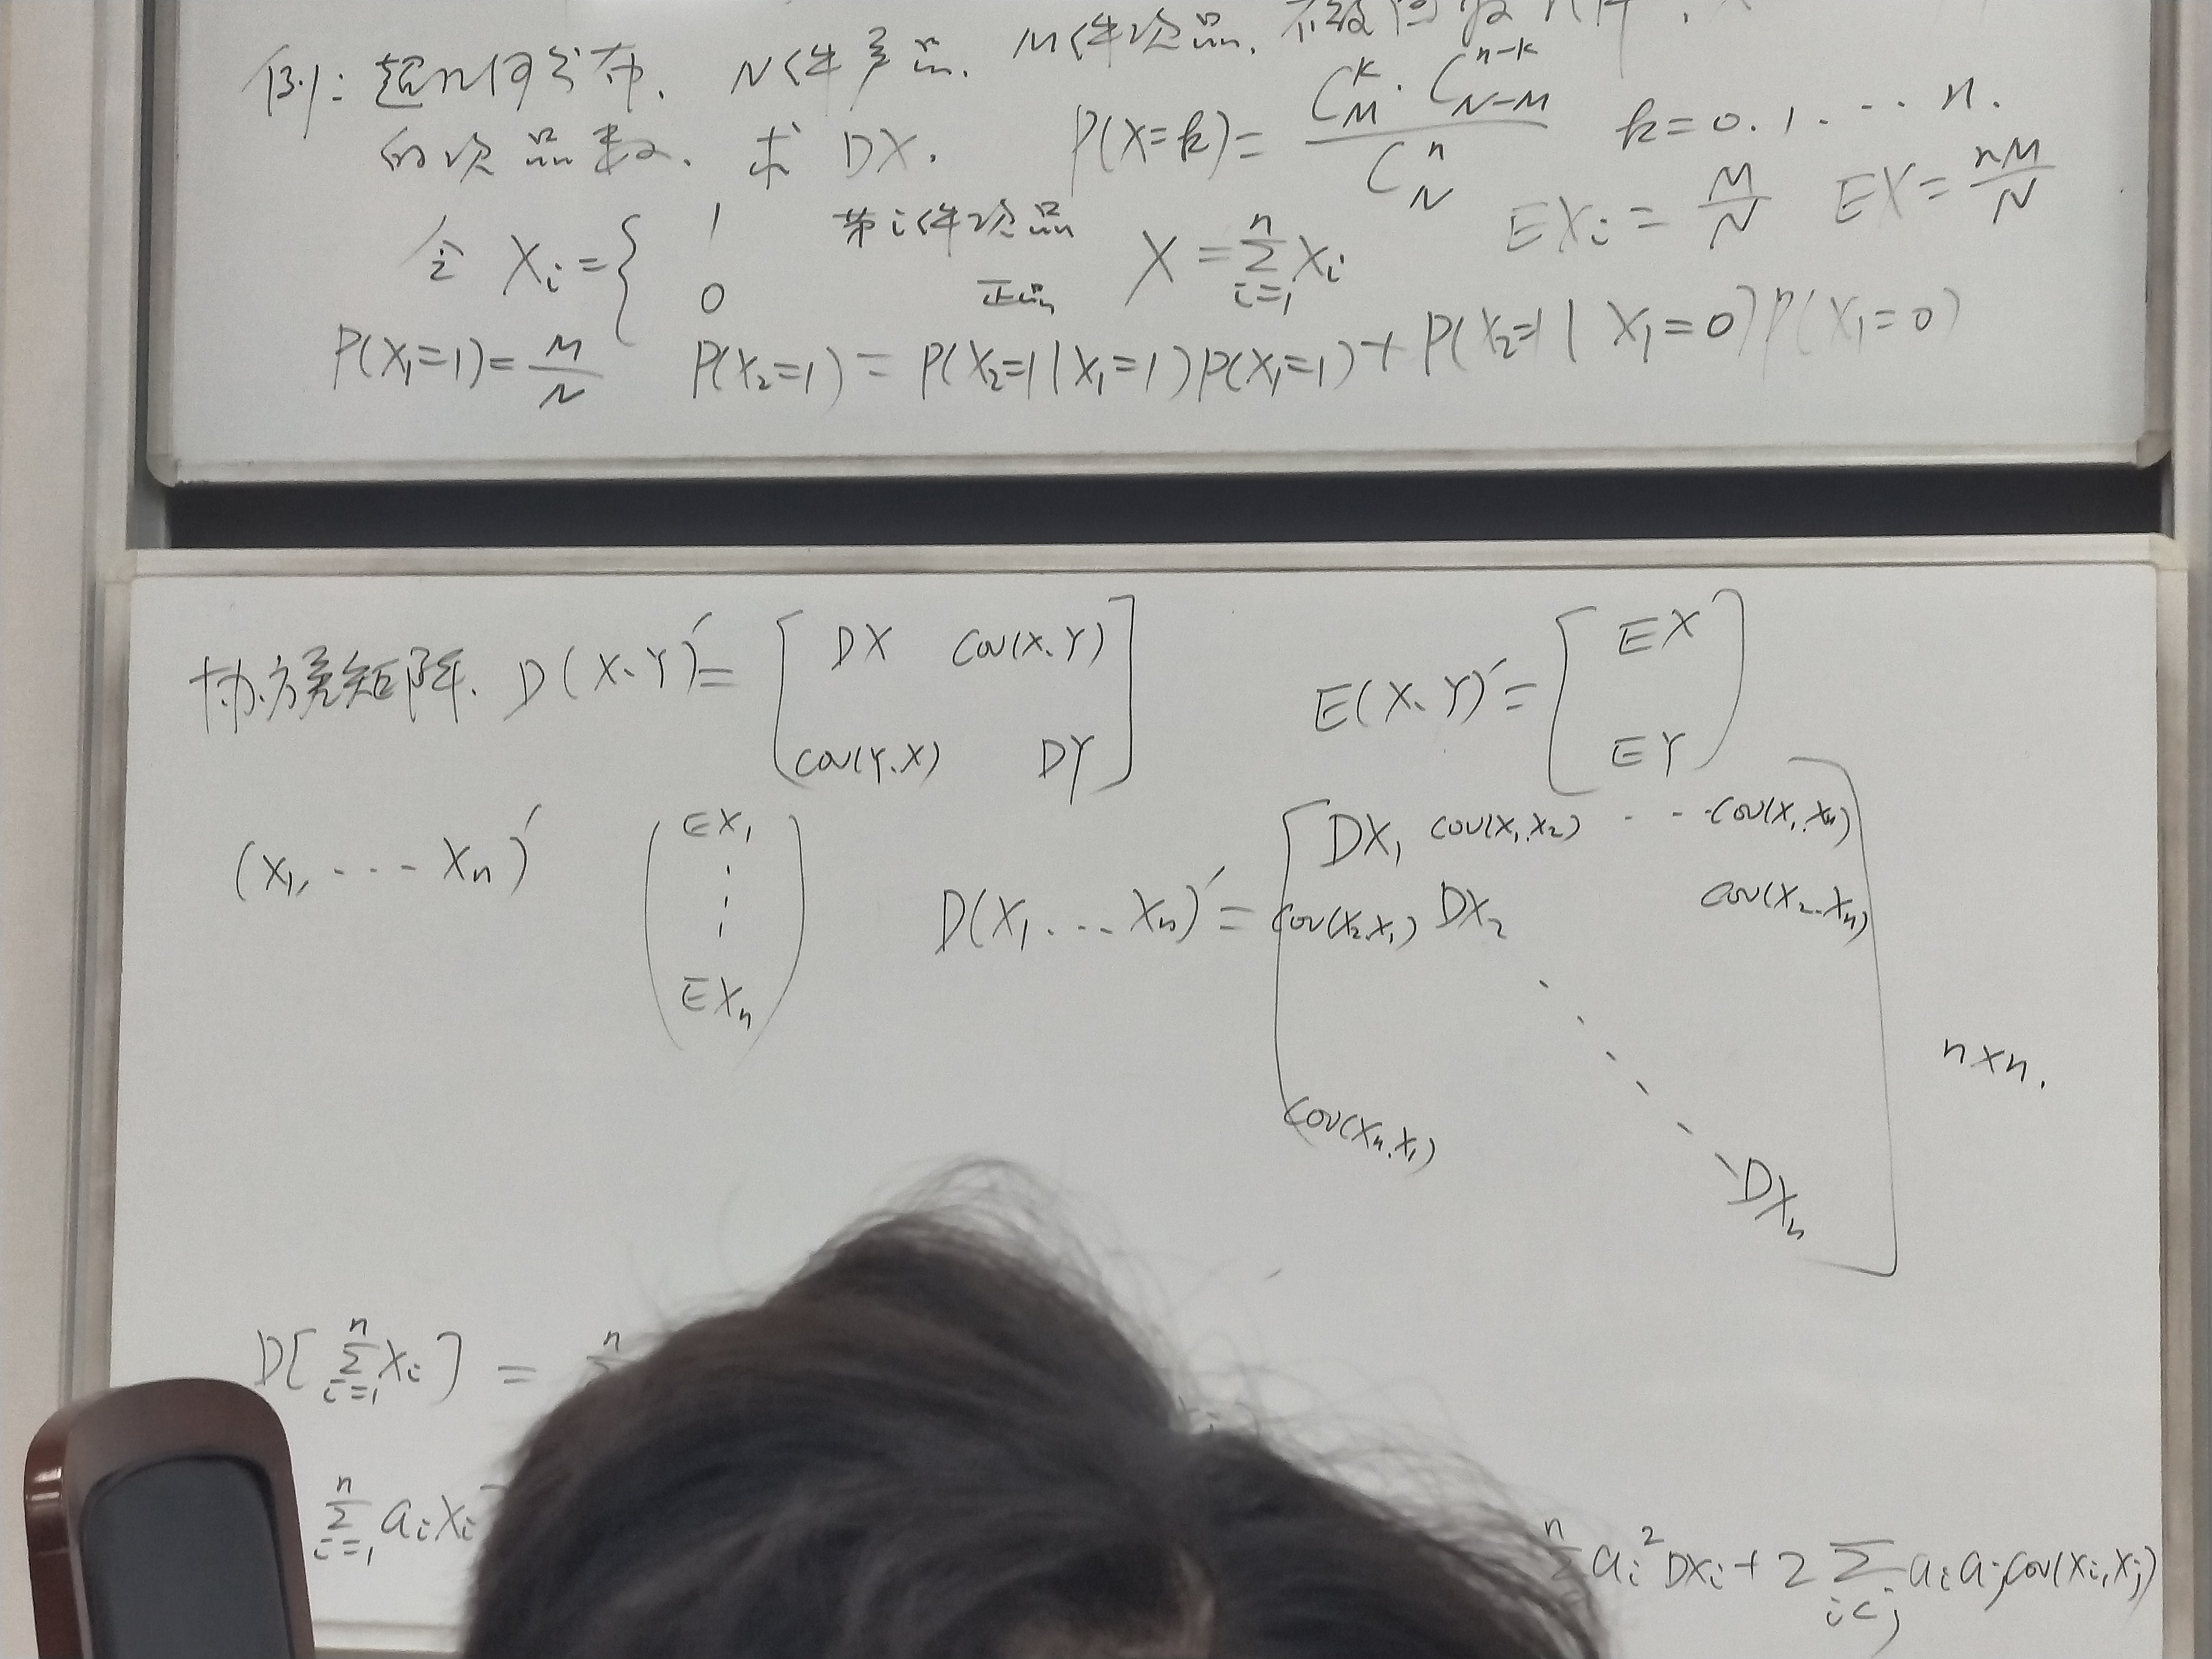 例: 超几何分布. N件产品. M件次品. 不放回取n件. X
的次品数. 求 DX. P(X=k)= C_M^k · C_{N-M}^{n-k} / C_N^n k=0.1.…n.
令 X_i={ 1 第i件次品 0 正品 X=∑_{i=1}^n X_i EX_i=M/N EX=nM/N
P(X_1=1)=M/N P(X_2=1)=P(X_2=1|X_1=1)P(X_1=1)+P(X_2=1|X_1=0)P(X_1=0)
协方差矩阵. D(X.Y)'=[DX cov(X.Y) cov(Y.X) DY] E(X.Y)'=[EX EY]
(X_1,…X_n)' (EX_1 ⋮ EX_n) D(X_1.…X_n)'=[DX_1 cov(X_1.X_2) … cov(X_1.X_n)
cov(X_2.X_1) DX_2 cov(X_2.X_n)
cov(X_n.X_1) DX_n] n×n.
D[∑_{i=1}^n X_i]= n
∑_{i=1}^n a_iX_i n a_i^2DX_i+2∑_{i<j} a_i a_j cov(X_i,X_j)